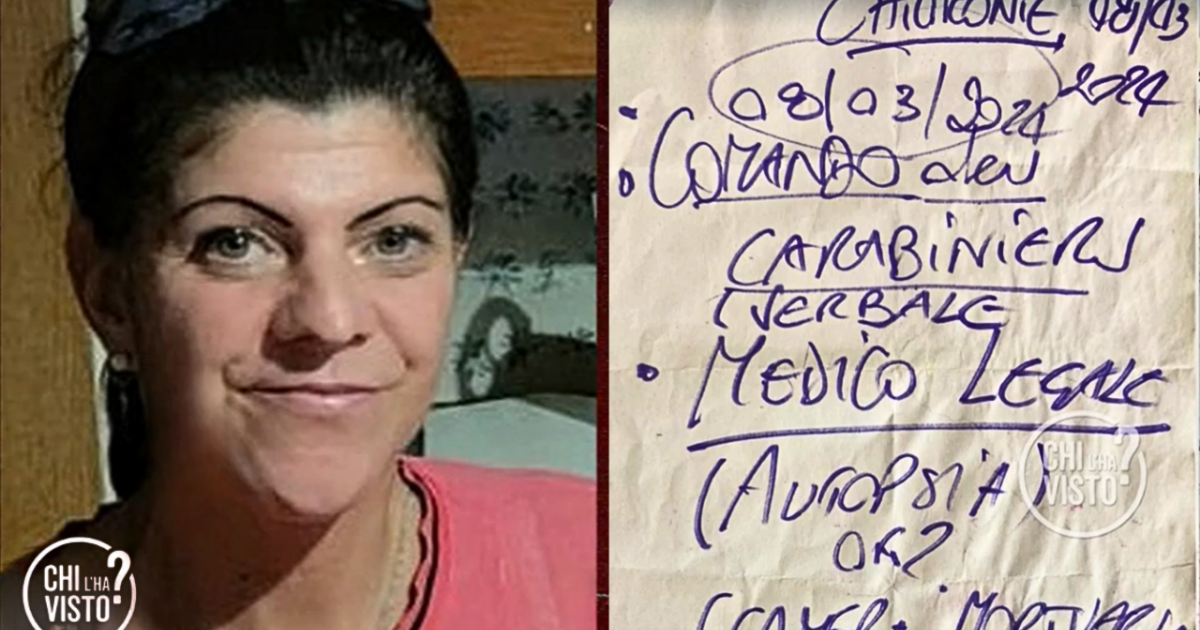 08/03
08/03/2024 2024
COMANDO DEI
CARABINIERI
(VERBALE
MEDICO LEGALE
(AUTOPSIA)
OK?
CHI L'HA VISTO?
CHI L'HA VISTO?